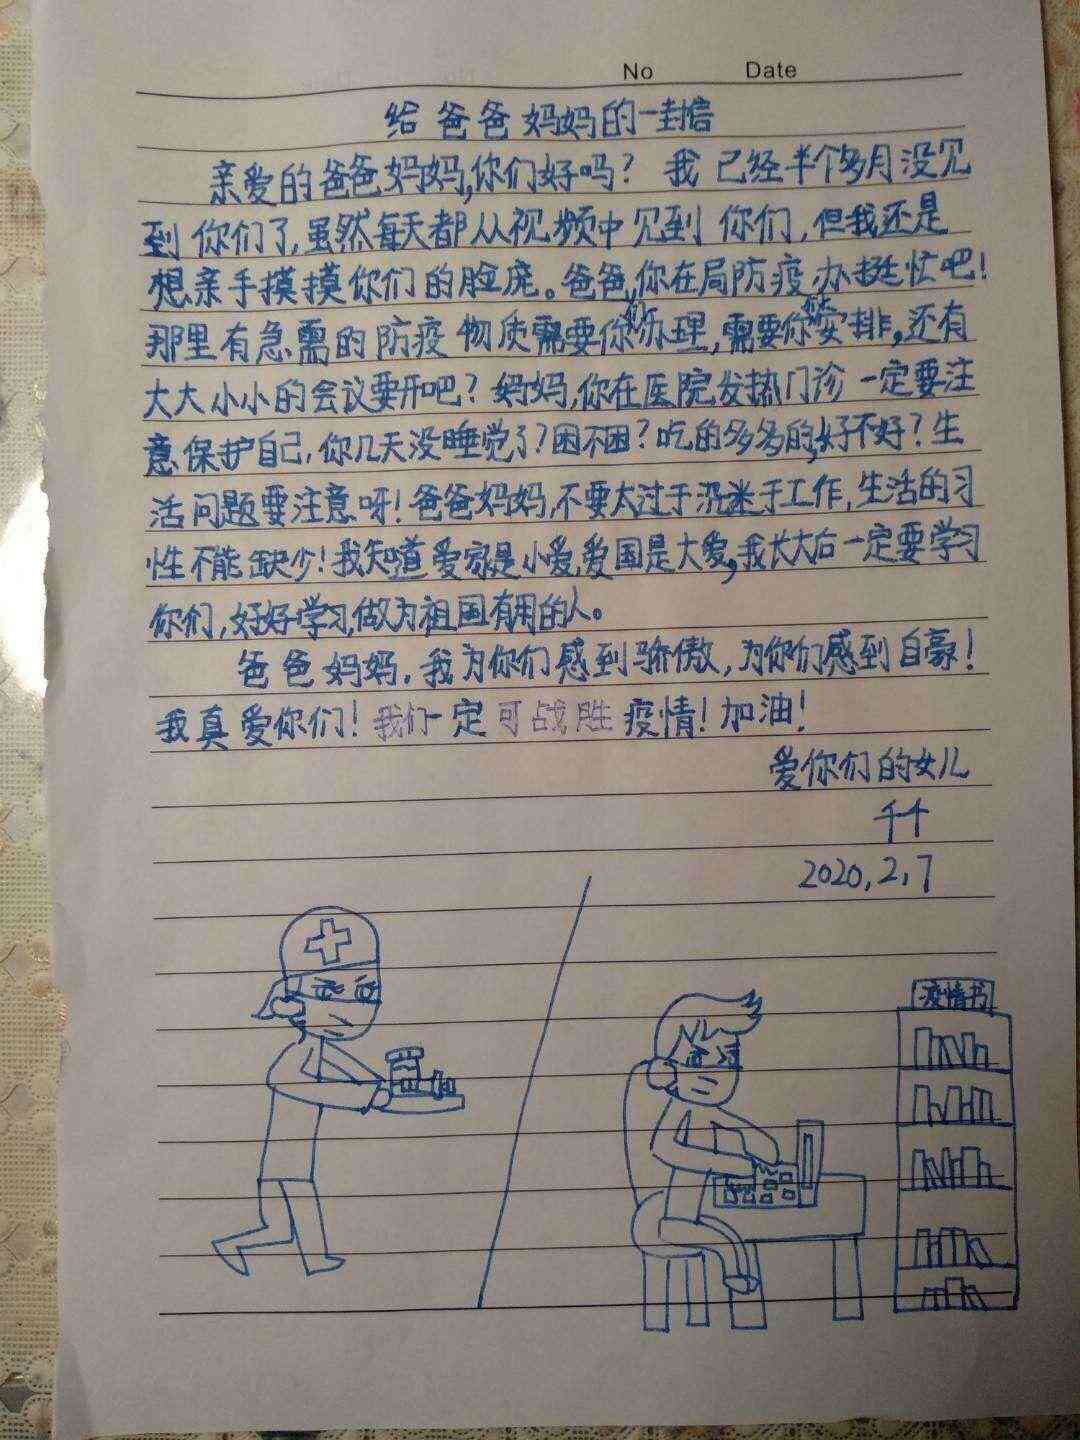 No Date
给爸爸妈妈的一封信
亲爱的爸爸妈妈,你们好吗？我已经半个多月没见
到你们了,虽然每天都从视频中见到你们,但我还是
想亲手摸摸你们的脸庞。爸爸,你在局防疫办挺忙吧！
那里有急需的防疫物质需要你办理,需要你安排,还有
大大小小的会议要开吧？妈妈,你在医院发热门诊一定要注
意保护自己,你几天没睡觉了？困不困？吃的多多的,好不好？生
活问题要注意呀！爸爸妈妈,不要太过于沉迷于工作,生活的习
性不能缺少！我知道爱家是小爱,爱国是大爱,我长大后一定要学习
你们,好好学习,做为祖国有用的人。
爸爸妈妈,我为你们感到骄傲,为你们感到自豪！
我真爱你们！我们一定可战胜疫情！加油！
爱你们的女儿
千千
2020,2,7
疫情书